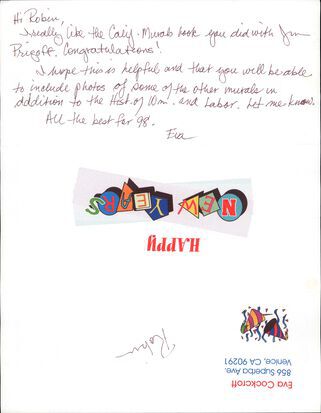 Hi Robin,
I really like the Calif. Murals book you did with Jim
Prigoff. Congratulations!
I hope this is helpful and that you will be able
to include photos of some of the other murals in
addition to the Hist. of 10m. and Labor. Let me know.
All the best for 98.
Eva
HAPPY
NEW YEARS
Robin
Eva Cockcroft
856 Superba Ave.
Venice, CA 90291